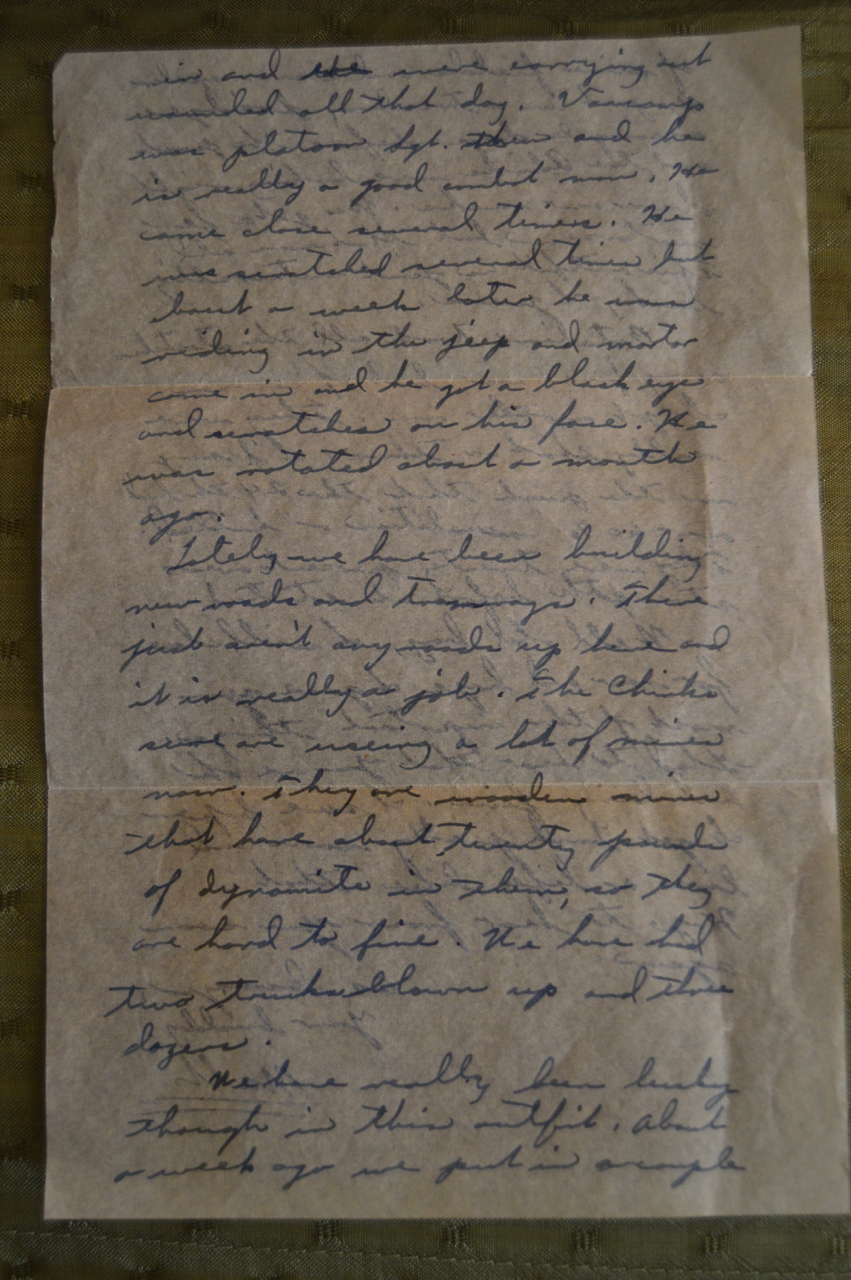 in and were carrying out
wounded all that day.
was platoon Sgt. then and he
is really a good combat man. He
came close several times. He
was scratched several times but
bout a week later he was
riding in the jeep and mortar
came in and he got a black eye
and scratches on his face. He
was rotated about a month
ago.
Lately we have been building
new roads and tramways. There
just aren't any roads up here and
it is really a job. The Chinks
sure are useing a lot of mines
now. They are wooden mines
that have about twenty pounds
of dynamite in them, so they
are hard to fine. We have had
two trucks blown up and three
dozers.
We have really been lucky
though in this outfit. About
a week ago we put in a couple